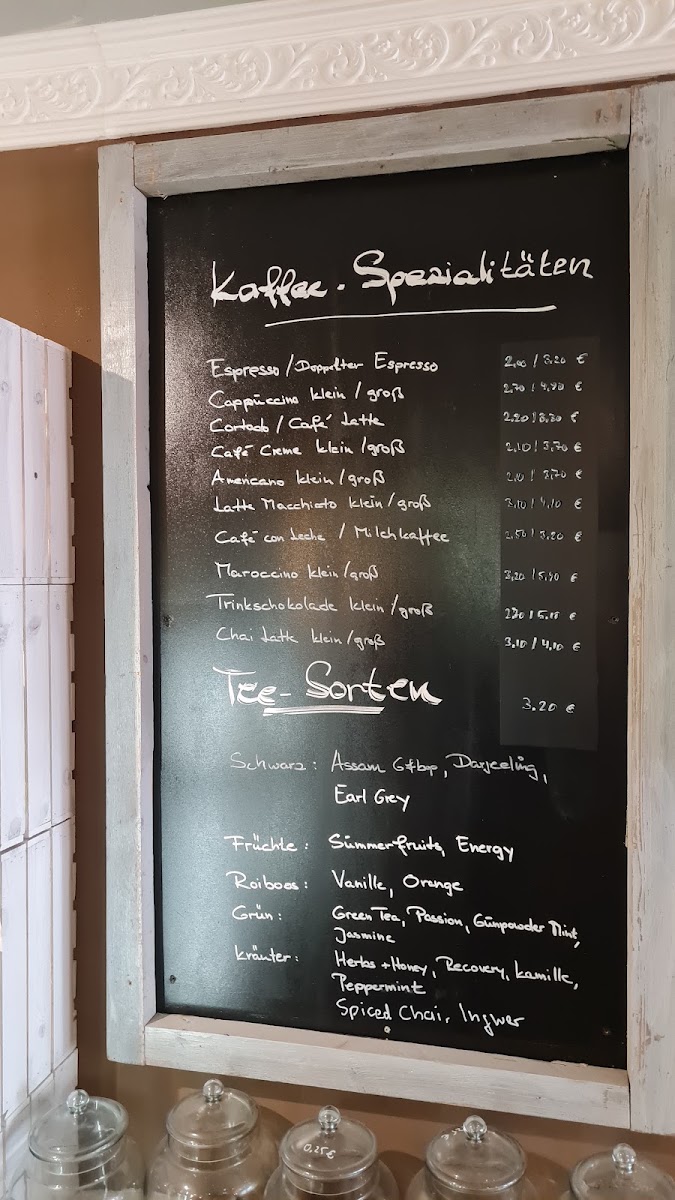 Kaffee-Spezialitäten
Espresso / Doppelter Espresso 2,00 / 3,20 €
Cappuccino klein / groß 2,70 / 4,90 €
Cortado / Café Latte 2,20 / 3,80 €
Café Creme klein / groß 2,10 / 3,70 €
Americano klein / groß 2,10 / 3,70 €
Latte Macchiato klein / groß 3,10 / 4,10 €
Café con Leche / Milchkaffee 2,50 / 3,80 €
Maroccino klein / groß 3,20 / 5,40 €
Trinkschokolade klein / groß
Chai Latte klein / groß 3,10 / 4,10 €
Tee-Sorten 3.20 €
Schwarz: Assam Gfbop, Darjeeling,
Earl Grey
Früchte: Summerfruits, Energy
Roiboos: Vanille, Orange
Grün: Green Tea, Passion, Gunpowder Mint,
Jasmine
Kräuter: Herbs + Honey, Recovery, Kamille,
Peppermint
Spiced Chai, Ingwer
0,25€